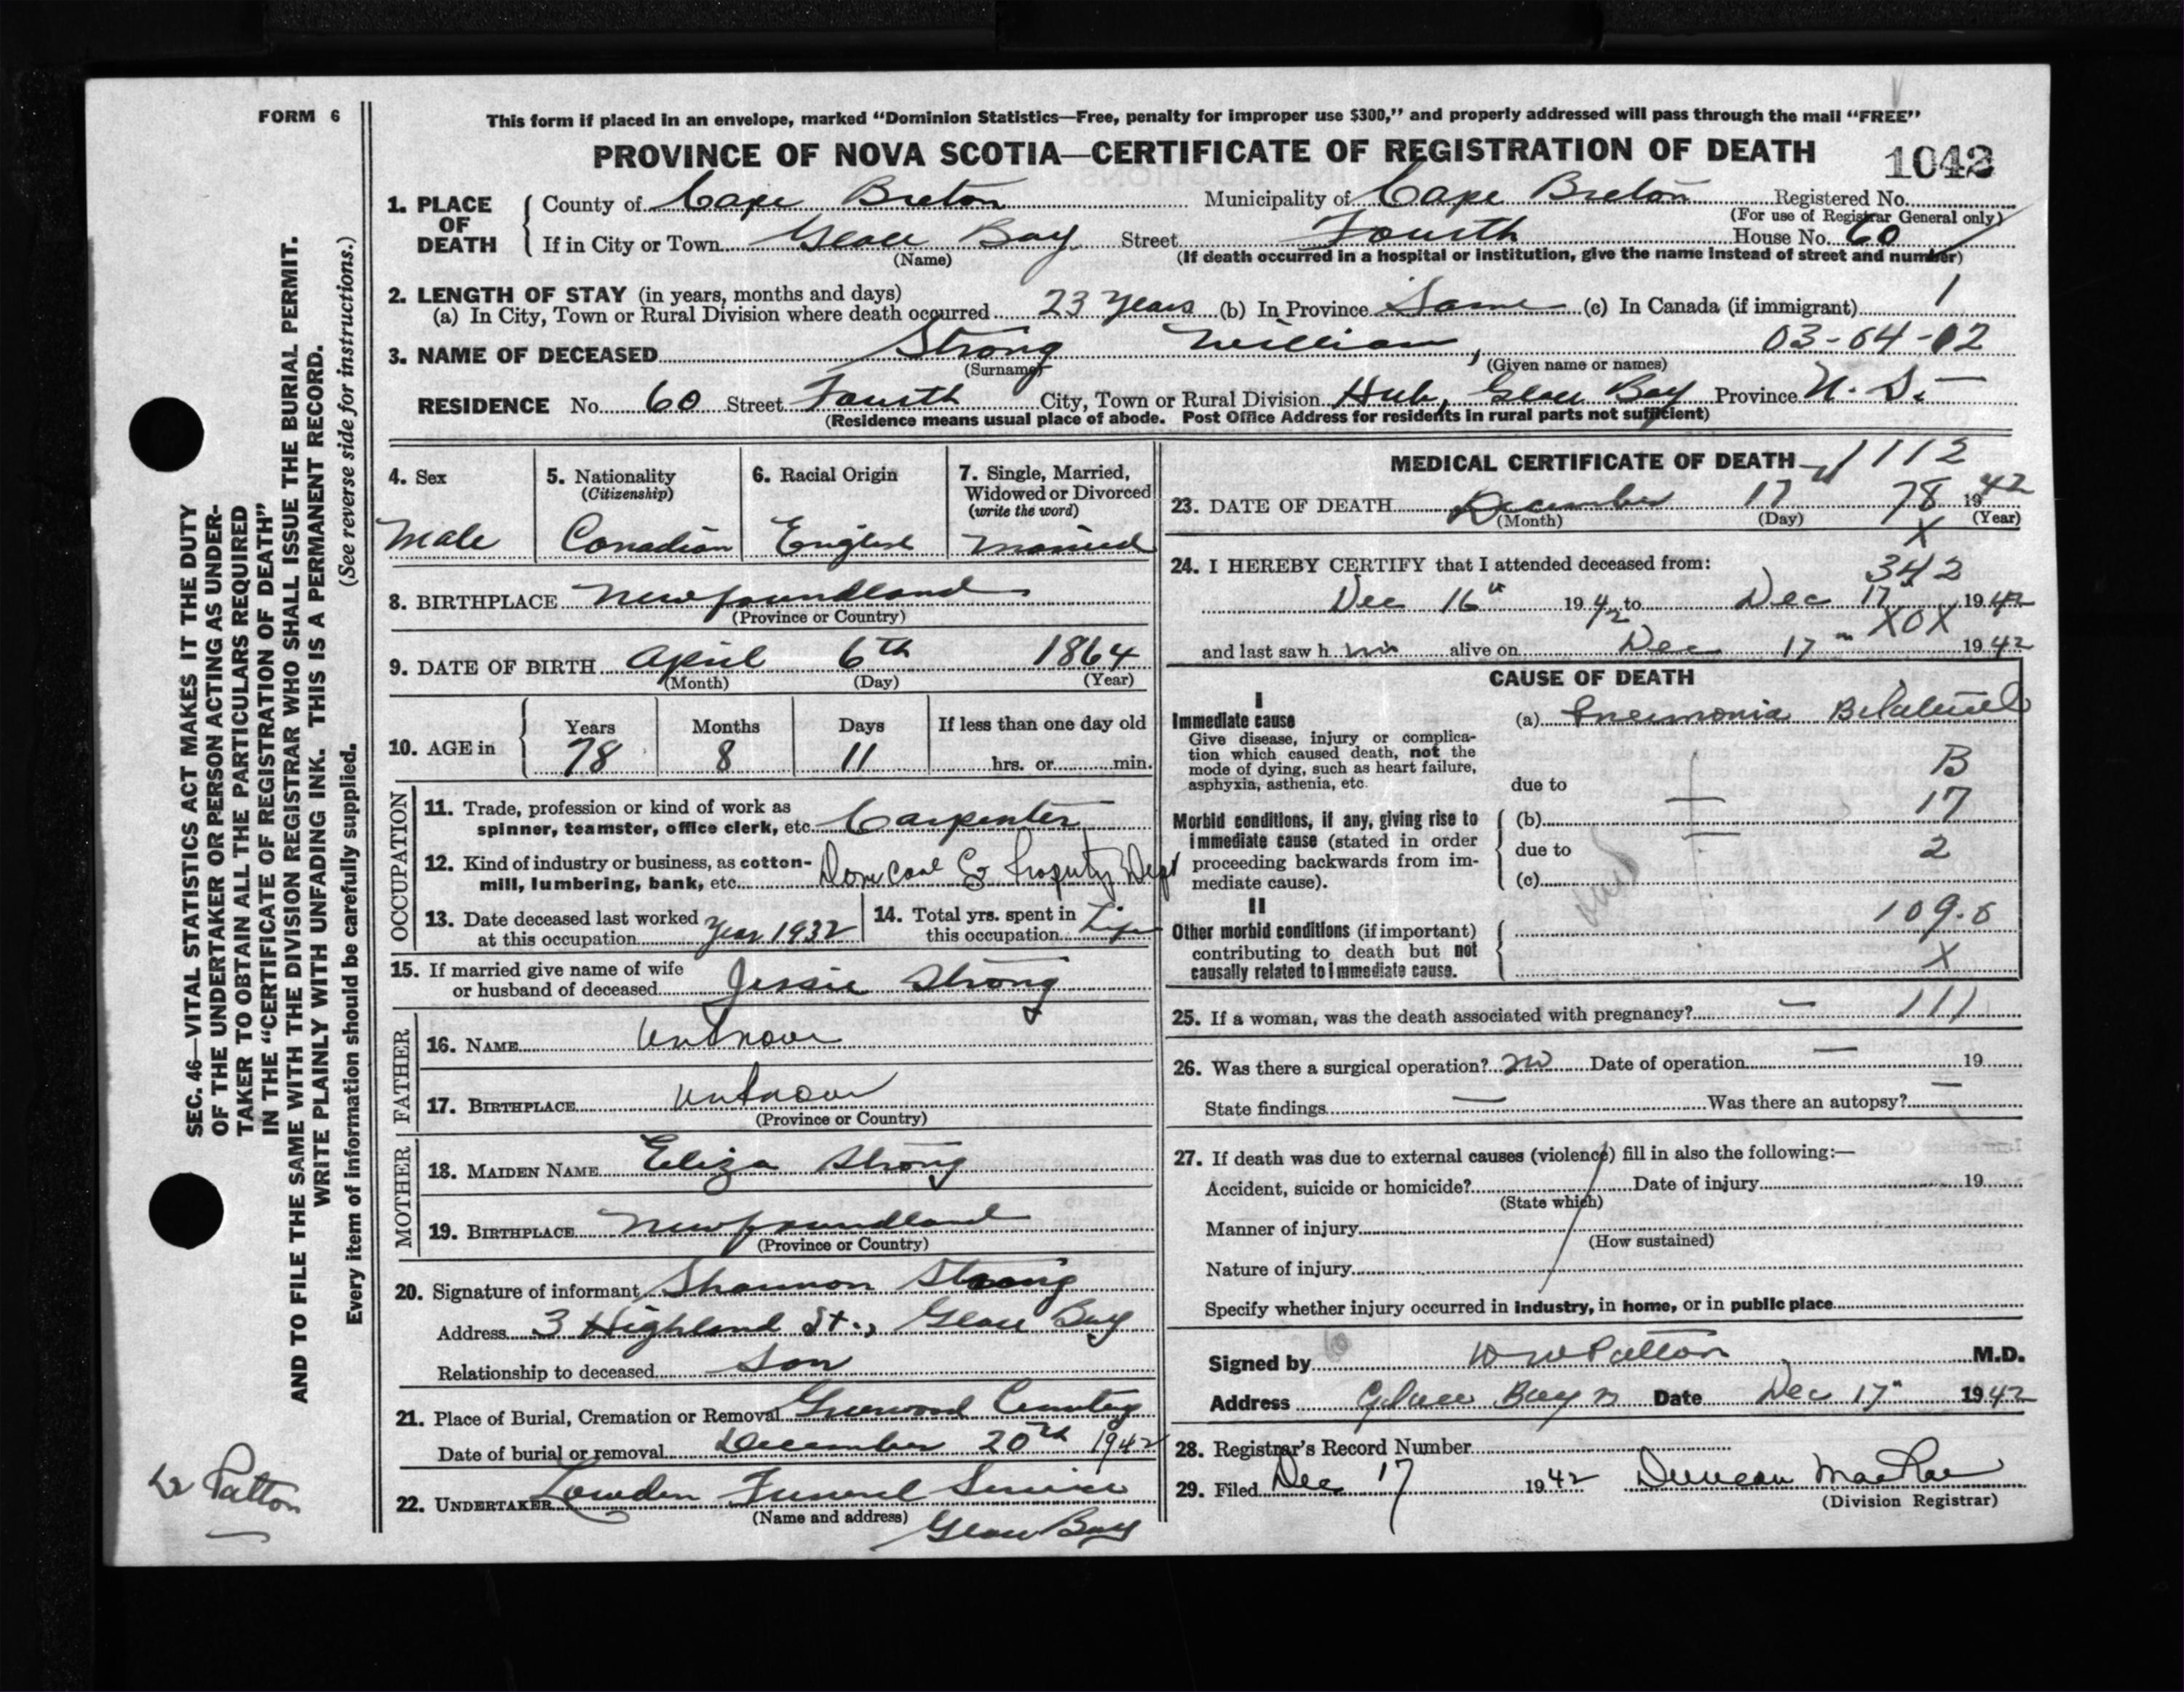 FORM 6
This form if placed in an envelope, marked “Dominion Statistics—Free, penalty for improper use $300,” and properly addressed will pass through the mail “FREE”
PROVINCE OF NOVA SCOTIA—CERTIFICATE OF REGISTRATION OF DEATH
1. PLACE OF DEATH County of Cape Breton Municipality of Cape Breton Registered No.
(For use of Registrar General only)
If in City or Town Glace Bay Street Fourth House No. 60
(Name) (If death occurred in a hospital or institution, give the name instead of street and number)
2. LENGTH OF STAY (in years, months and days)
(a) In City, Town or Rural Division where death occurred 23 years (b) In Province Same (c) In Canada (if immigrant) 1
3. NAME OF DECEASED Strong William, 03-64-02
(Surname) (Given name or names)
RESIDENCE No. 60 Street Fourth City, Town or Rural Division Hub, Glace Bay Province N. S.
(Residence means usual place of abode. Post Office Address for residents in rural parts not sufficient)
4. Sex
Male
5. Nationality
(Citizenship)
Canadian
6. Racial Origin
English
7. Single, Married,
Widowed or Divorced
(write the word)
Married
8. BIRTHPLACE Newfoundland
(Province or Country)
9. DATE OF BIRTH April 6th 1864
(Month) (Day) (Year)
10. AGE in Years Months Days If less than one day old
78 8 11 hrs. or min.
OCCUPATION
11. Trade, profession or kind of work as
spinner, teamster, office clerk, etc. Carpenter
12. Kind of industry or business, as cotton-
mill, lumbering, bank, etc. Dom Coal Co Property Dept
13. Date deceased last worked
at this occupation Year 1932
14. Total yrs. spent in
this occupation Life
15. If married give name of wife
or husband of deceased Jessie Strong
FATHER
16. NAME Unknown
17. BIRTHPLACE unknown
(Province or Country)
MOTHER
18. MAIDEN NAME Eliza Strong
19. BIRTHPLACE Newfoundland
(Province or Country)
20. Signature of informant Shannon Strong
Address 3 Highland St., Glace Bay
Relationship to deceased Son
21. Place of Burial, Cremation or Removal Greenwood Cemetery
Date of burial or removal December 20th 1942
22. UNDERTAKER Lowden Funeral Service
(Name and address) Glace Bay
MEDICAL CERTIFICATE OF DEATH 1112
23. DATE OF DEATH December 17 78 1942
(Month) (Day) (Year)
X
24. I HEREBY CERTIFY that I attended deceased from:
342
Dec 16th 1942 to Dec 17th 1942
XOX
and last saw him alive on Dec 17th 1942
CAUSE OF DEATH
I
Immediate cause
Give disease, injury or complica-
tion which caused death, not the
mode of dying, such as heart failure,
asphyxia, asthenia, etc.
(a) Pneumonia Bilateral
B
due to
17
Morbid conditions, if any, giving rise to
immediate cause (stated in order
proceeding backwards from im-
mediate cause).
(b)
due to 2
(c)
II
Other morbid conditions (if important)
contributing to death but not
causally related to immediate cause.
109.0
X
25. If a woman, was the death associated with pregnancy? — 111
26. Was there a surgical operation? no Date of operation — 19
State findings — Was there an autopsy? —
27. If death was due to external causes (violence) fill in also the following:—
Accident, suicide or homicide? Date of injury 19
(State which)
Manner of injury
(How sustained)
Nature of injury
Specify whether injury occurred in industry, in home, or in public place
Signed by W W Patton M.D.
Address Glace Bay Date Dec 17th 1942
28. Registrar's Record Number
29. Filed Dec 17 1942 Duncan MacRae
(Division Registrar)
SEC. 46—VITAL STATISTICS ACT MAKES IT THE DUTY
OF THE UNDERTAKER OR PERSON ACTING AS UNDER-
TAKER TO OBTAIN ALL THE PARTICULARS REQUIRED
IN THE “CERTIFICATE OF REGISTRATION OF DEATH”
AND TO FILE THE SAME WITH THE DIVISION REGISTRAR WHO SHALL ISSUE THE BURIAL PERMIT.
WRITE PLAINLY WITH UNFADING INK. THIS IS A PERMANENT RECORD.
(See reverse side for instructions.)
Every item of information should be carefully supplied.
Dr Patton